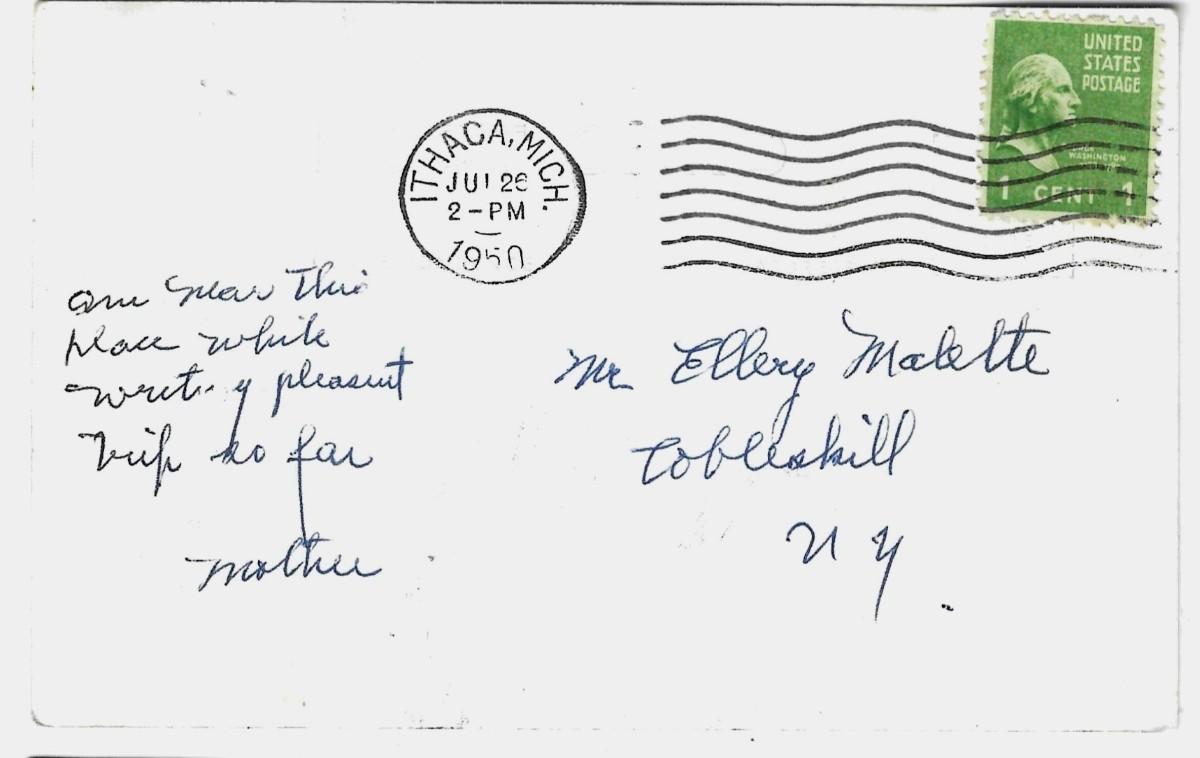 UNITED
STATES
POSTAGE
WASHINGTON
1 CENT 1
ITHACA, MICH.
JUL 26
2-PM
1950
am near this
place while
writing pleasant
trip so far
Mother
Mr Ellery Malette
Cobleskill
N Y